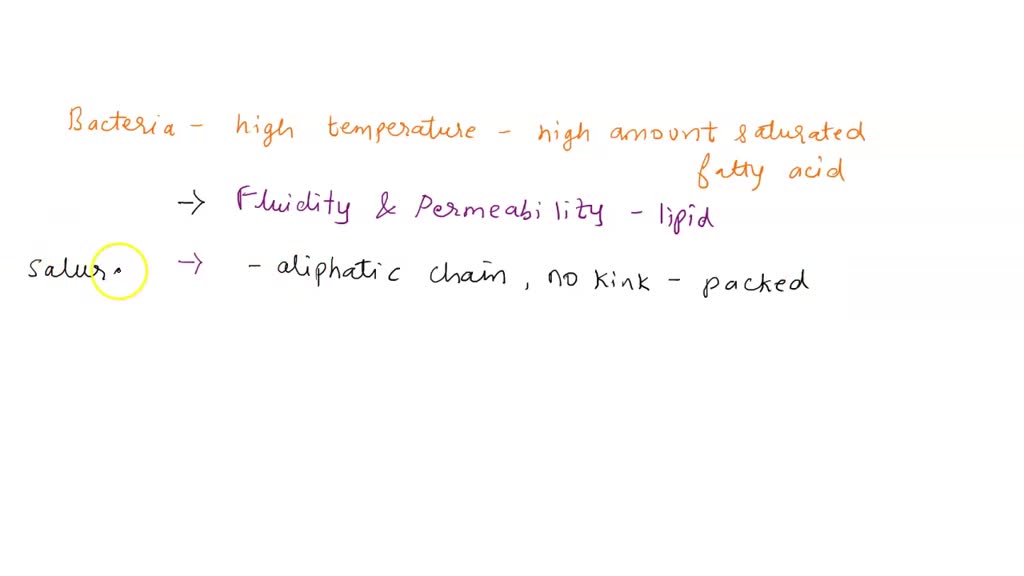 Bacteria - high temperature - high amount saturated
fatty acid
→ Fluidity & Permeability - lipid
Satur. → - aliphatic chain, no kink - packed